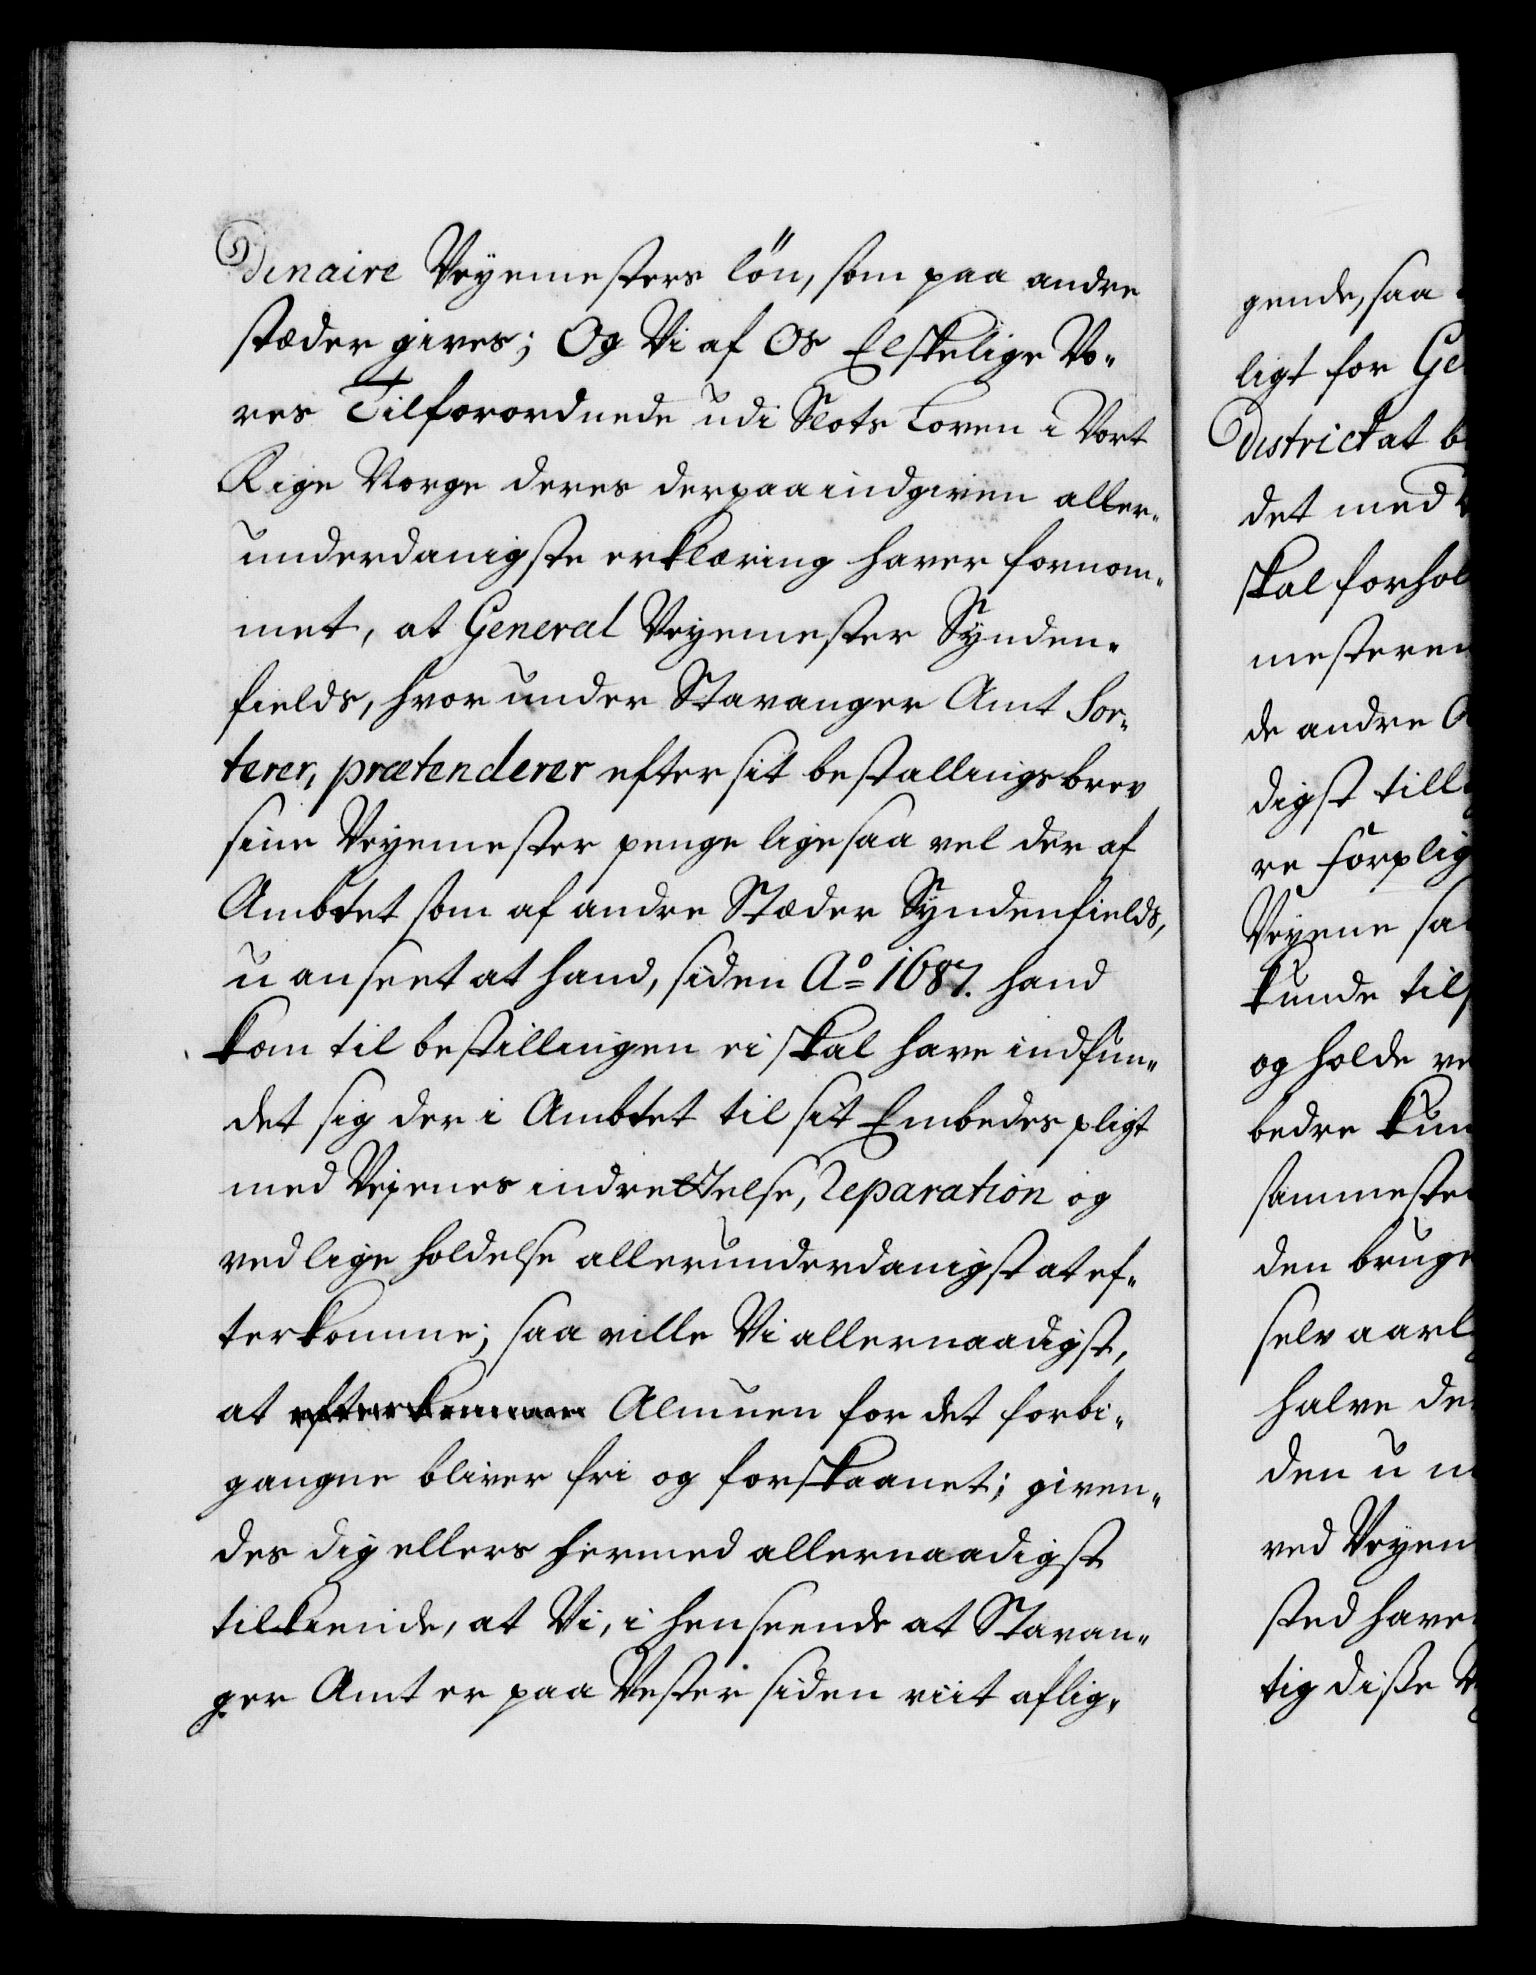 dinaire Veyemesters løn, som paa andre
stæder gives; Og Vi af Os Elskelige Vo-
res Tilforordnede udi Slots Loven i Vort
Rige Norge deres derpaa indgiven aller-
underdanigste erklæring haver fornom-
met, at General Veyemester Synden-
fields, hvor under Stavanger Amt Sor-
terer, prætenderer efter sit bestallingsbrev
sine Veyemester penge lige saa vel der af
Ambtet som af andre Stæder Syndenfields,
u anseet at hand, siden Ao 1687. hand
kom til bestillingen ei skal have indfun-
det sig der i Ambtet til sit Embedes pligt
med Vejenes indrettelse, Reparation og
vedlige holdelse allerunderdanigst at ef-
terkomme; saa ville Vi allernaadigst,
at efterkomme Almuen for det forbi-
gangne bliver fri og forskaanet; given-
des dig ellers hermed allernaadigst
tilkiende, at Vi, i henseende at Stavan-
ger Amt er paa Vester siden viit aflig-
gende, saa
ligt for Ge
District at b
det med
skal forhol
mesteren
de andre
digst till
re forplig
Veyene sa
kunde til
og holde ve
bedre kun
sammeste
den bruge
selv aarl
halve de
den u
ved Veyen
sted have
tig disse